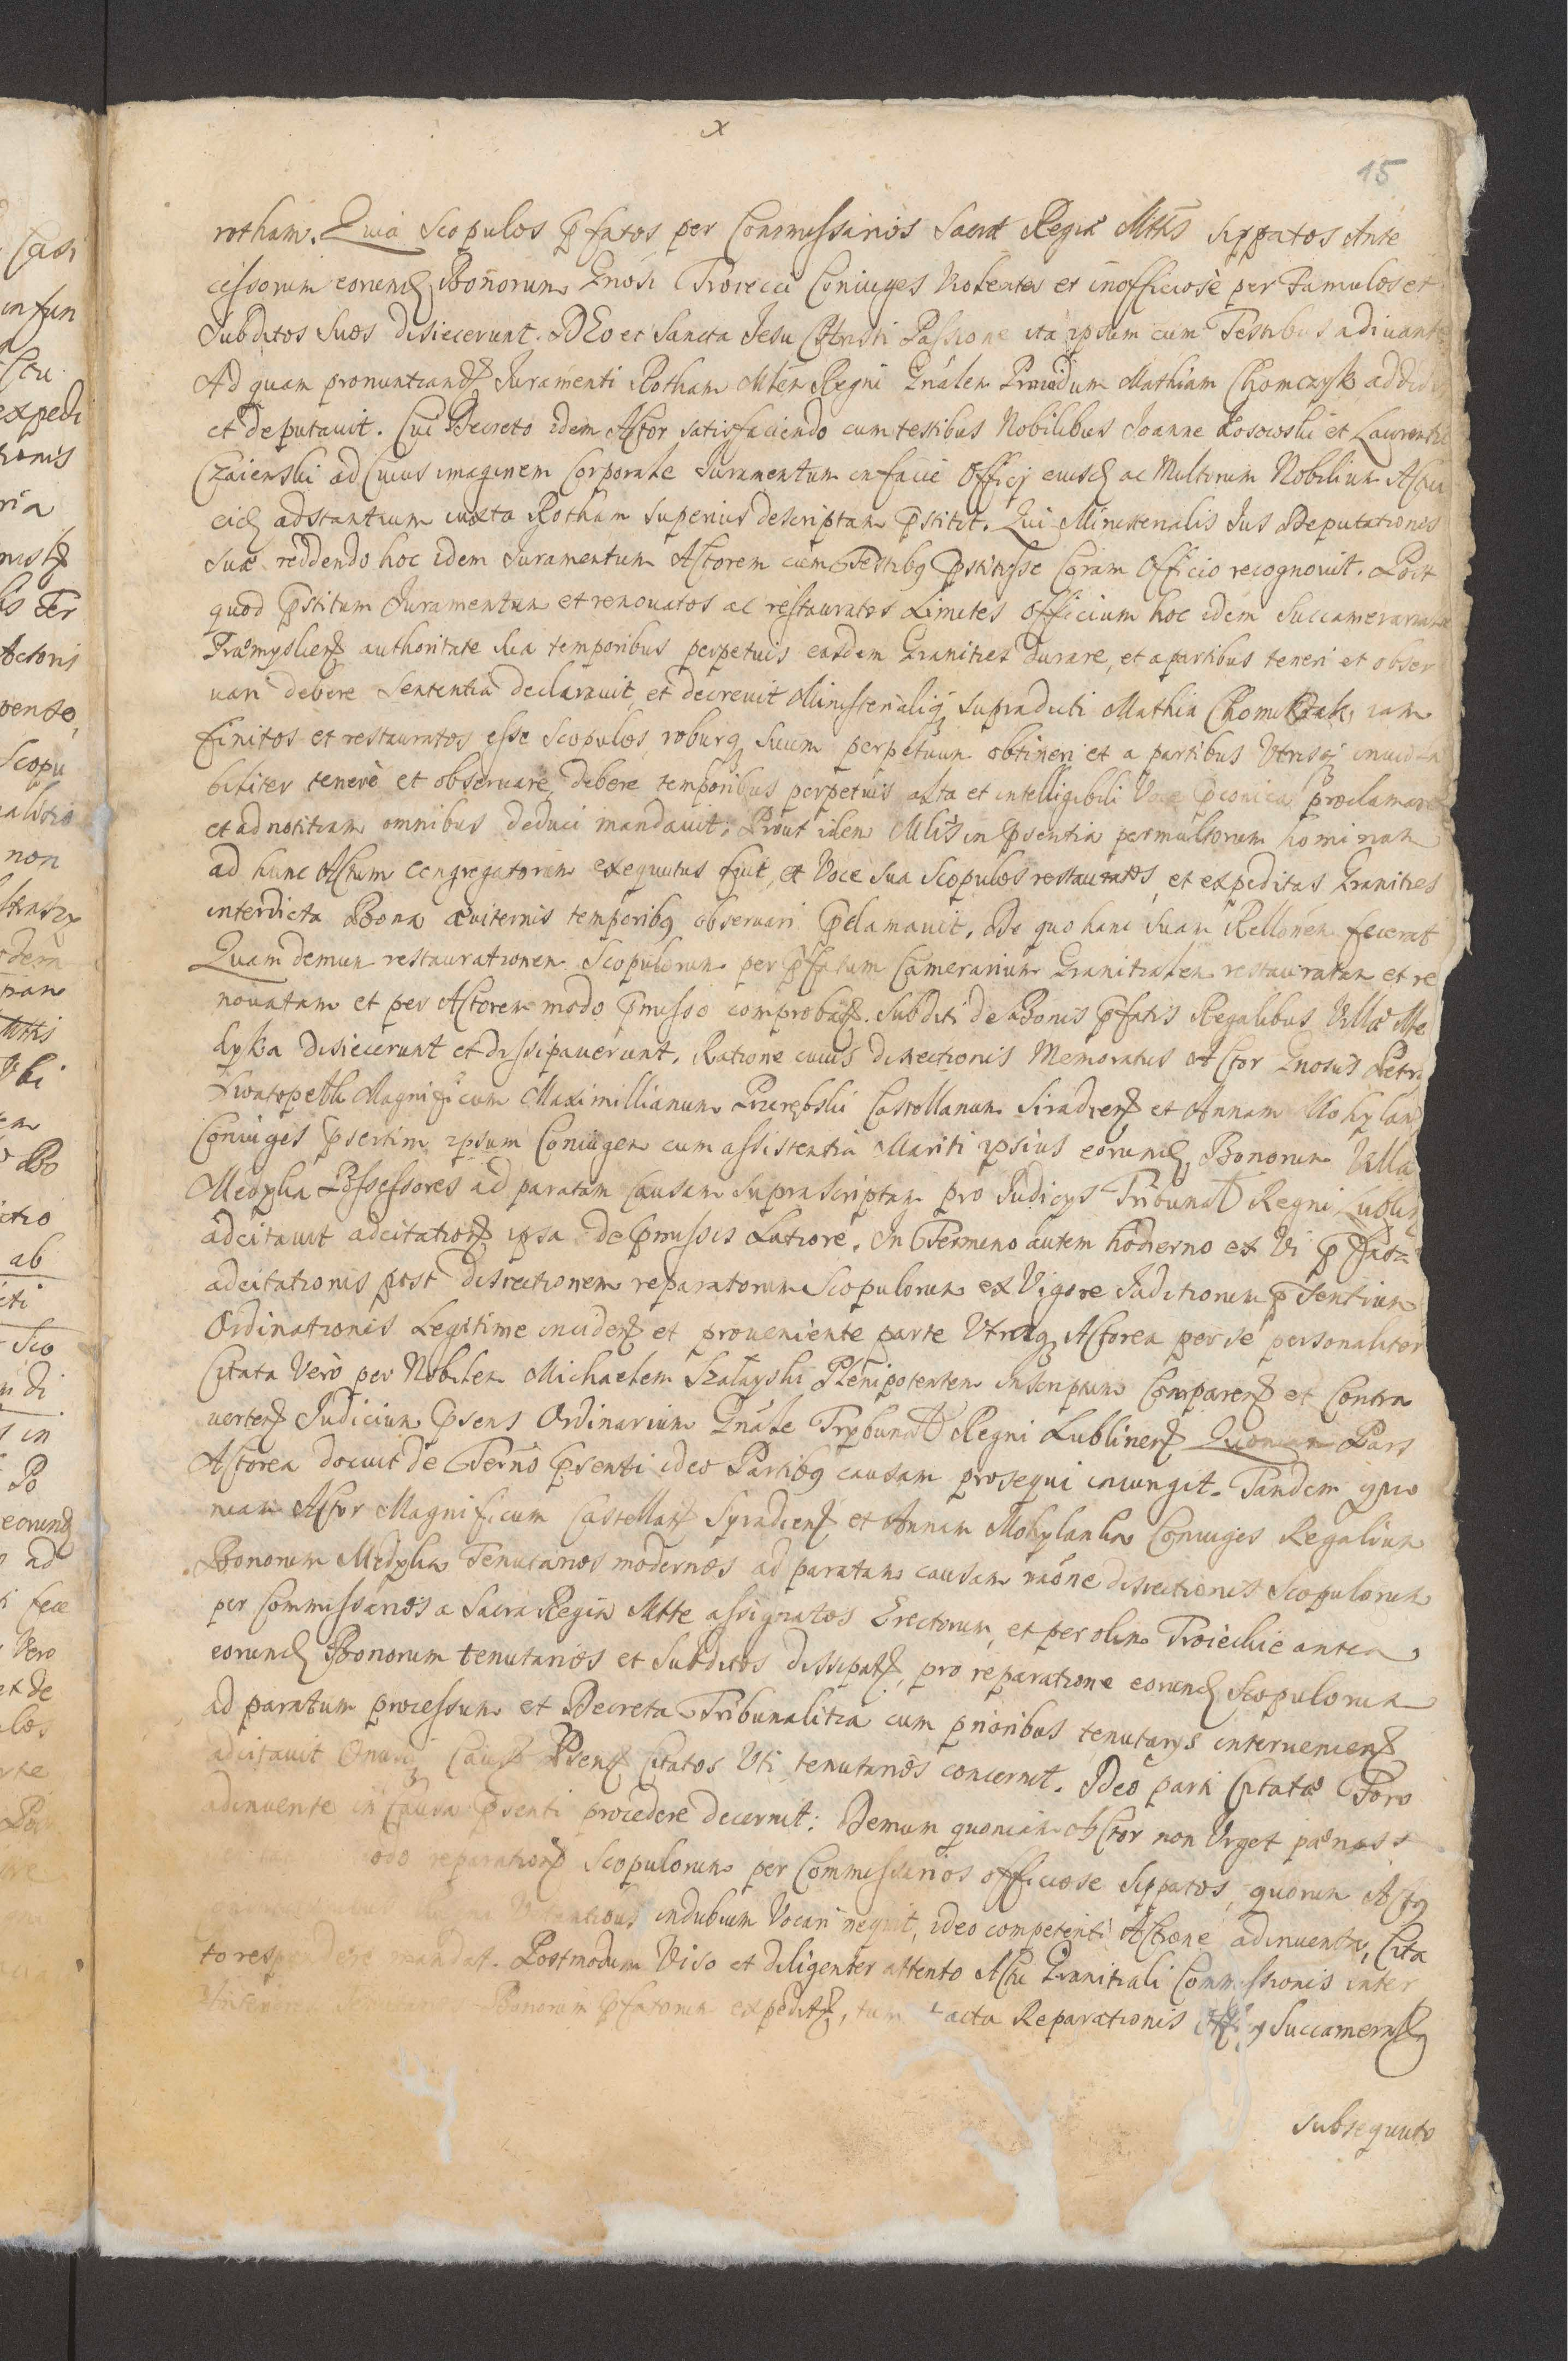 x
15
rotham. Quia Scopulos pfatos per Commissarios Sacrae Regiae Mttis sippatos Ante
cessorum eorund Bonorum Gnosi Troiecci Coniuges violenter et inofficiosè per Famulos et
Subditos Suos disiecerunt. DEo et Sancta Jesu CHristi Passione ita ipsum cum Testibus adiuante
Ad quam pronuntiand Juramenti Rotham Mlen Regni Gnálen Providum Mathiam Chomczyk addidit
et deputauit. Cui Decreto idem Actor satisfaciendo cum testibus Nobilibus Joanne Kosowski et Laurentio
Czaierski ad Cuius imaginem Corporale Juramentum in facie Officij eiusd ac Multorum Nobilium Actui
eid adstantium iuxta Rotham superius descriptam pstitit. Qui Ministerialis Jus Deputationis
suae reddendo hoc idem Juramentum Actorem cum Testibq pstitisse Coram Officio recognouit. Post
quod pstitum Juramentum et renouatos ac restauratos Limites Officium hoc idem Succamerariale
Præmyslien authoritate sua temporibus perpetuis easdem Granities durare, et a partibus teneri et obser
uari debere Sententia declarauit et decreuit Ministerialiq supradicti Mathia Chomczak, iam
finitos et restauratos esse Scopulos roburq suum perpetuum obtineri et a partibus Utrisq inuiola
biliter tenerè et obseruare debere temporibus perpetuis alta et intelligibili Voce pconica proclamare
et ad notitiam omnibus deduci mandauit. Prout idem Mlis in psentia permultorum hominum
ad hunc Actum Congregatorum exequutus fuit, et Voce sua Scopulos restauratos, et expeditas Granities
interdicta Bona æuiternis temporibq obseruari pclamauit. De quo hanc suam Rellónem fecerat
Quam demum restaurationem Scopulorum per pfatum Camerarium Granitialem restauratam et re
nouatam et per Actorem modo pmisso comprobat. Subditi de Bonis pfatis Regalibus Villæ Me
dyka disiecerunt et dissipauerunt. Ratione cuius disiectionis Memoratus Actor Gnosus Petrus
Swatopelk Magnificum Maximillianum Przerębski Castellanum Siradien et Annam Mohylan
Coniuges psertim ipsum Coniugem cum assistentia Mariti ipsius eorund Bonorum Villa
Medyka Possessores ad paratam causam supra scriptam pro Judicys Tribunal Regni Lublin
adcitauit adcitation ipsa de pmissis Latiore. In Termino autem hodierno ex Vi pfat
adcitationis post disiectionem reparatorum Scopulorum ex Vigore Judiciorum psentium
Ordinationis Legitime inciden et proueniente parte Utraq Actorea per se personaliter
Citata Verò per Nobilem Michaelem Szatayski Plenipotentem inscriptum Comparen et Contra
uerten Judicium psens Ordinarium Gnále Trybunal Regni Lublinen Quoniam Pars
Actorea docuit de Ternô psenti ideo Partibq causam prosequi iniungit. Tandem quo
niam Actor Magnificum Castellan Syradien et Annam Mohylanka Coniuges Regalium
Bonorum Medyka Tenutarios modernos ad paratam causam raône disiectionis Scopulorum
per Commissarios a Sacra Regia Mtte assignatos Erectorum, et per olim Troieckie antea,
eorund Bonorum tenutarios et Subditos dissipat, pro reparatione eorund Scopulorum
ad paratum processum et Decreta Tribunalitia cum prioribus tenutarys interuenien
adcitauit Onusq Caus psen Citatos Uti tenutarios concernit. Ideo parti Citatæ Foro
adinuente in Causa psenti procedere decernit: Demum quoniam Actor non Urget pænas s
reparation Scopulorum per Commissarios officiose sippatos, quorum Actq
indubium Vocari nequit, ideo competenti Actione adinuenta, Cita
to respondere mandat. Postmodum Viso et diligenter attento Actu Granitiali Commissionis inter
Bonorum pfatorum expedit, tum acta Reparationis Succameralq
subsequuto